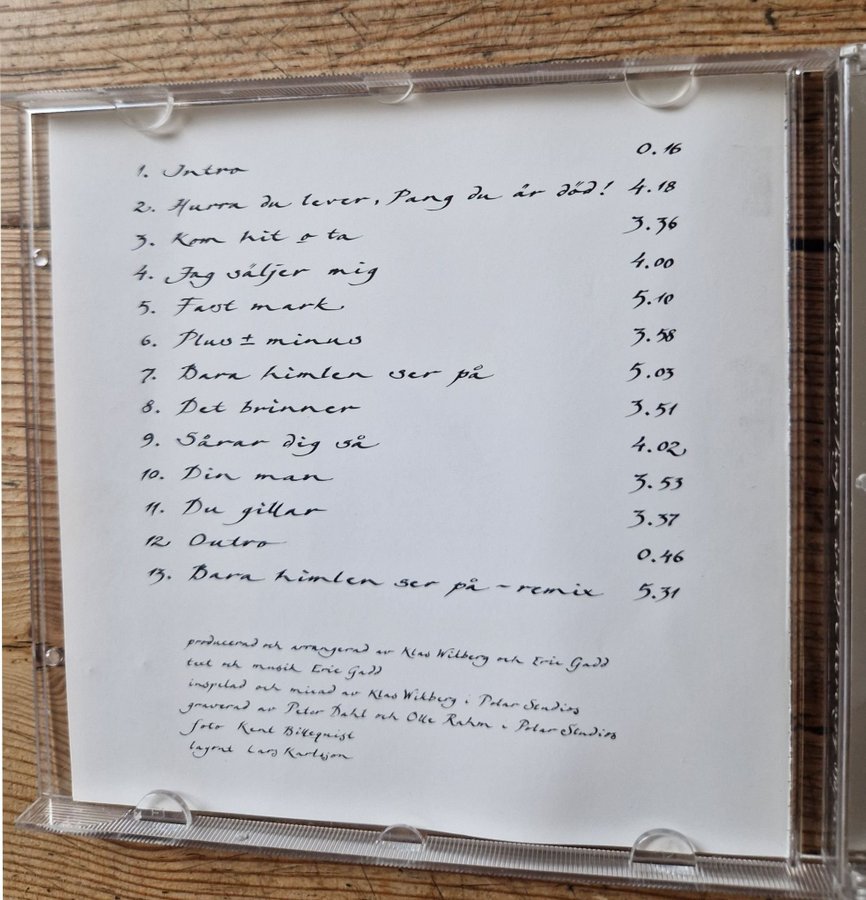 1. Intro 0.16
2. Hurra du lever, Pang du är död! 4.18
3. Kom hit o ta 3.36
4. Jag säljer mig 4.00
5. Fast mark 5.10
6. Plus ± minus 3.58
7. Bara himlen ser på 5.03
8. Det brinner 3.51
9. Sårar dig så 4.02
10. Din man 3.53
11. Du gillar 3.37
12 Outro 0.46
13. Bara himlen ser på - remix 5.31
producerad och arrangerad av Klas Wikberg och Eric Gadd
text och musik Eric Gadd
inspelad och mixad av Klas Wikberg i Polar Studios
graverad av Peter Dahl och Olle Rahm i Polar Studios
foto Kent Billequist
layout Lars Karlsson